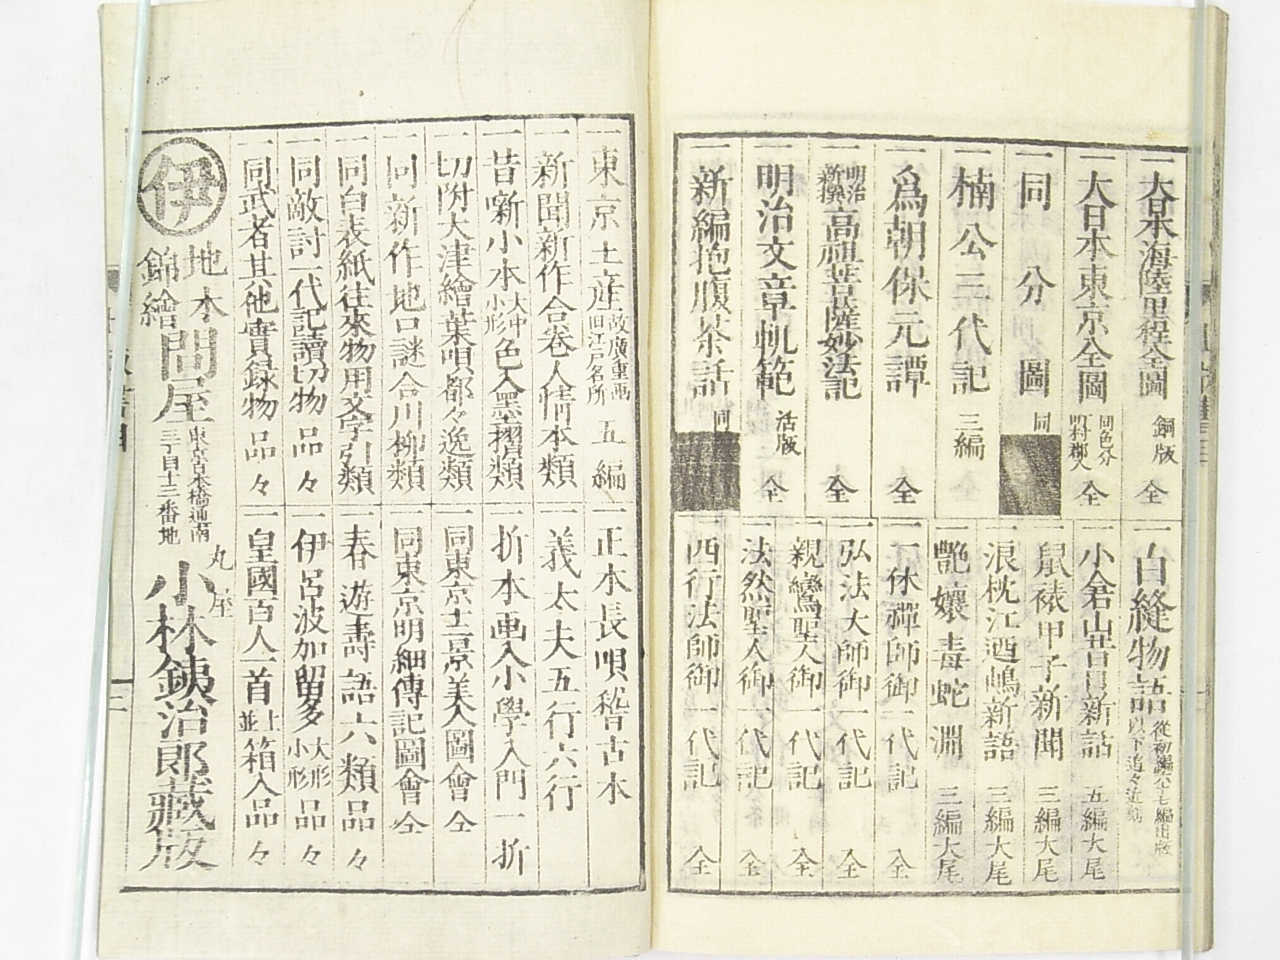 一大日本海陸里程全圖 銅版 全
一大日本東京全圖 同色分 町村郡入 全
一同 分 圖 同
一楠公三代記 三編
一爲朝保元譚 全
一明治新撰高祖菩薩妙法記 全
一明治文章帆範 活版 全
一新編抱腹茶話 同
一白縫物語 從初編六七編出版 以下追々近刻
一小倉山昔日新話 五編大尾
一鼠裱甲子新聞 三編大尾
一浪枕江洒嶋新語 三編大尾
一艶孃毒蛇淵 三編大尾
一一休禪師御一代記 全
一弘法大師御一代記 全
一親鸞聖人御一代記 全
一法然聖人御一代記 全
一西行法師御一代記 全
一東京土産 故廣重画 旧江戸名所 五編
一新聞新作合卷人情本類
一昔噺小本 大中小形 色入墨摺類
一切附大津繪葉唄都々逸類
一同新作地口謎合川柳類
一同白表紙往來物用文字引類
一同敵討一代記讀切物 品々
一同武者其外他實録物 品々
一正本長唄稽古本
一義太夫五行六行
一折本画入小學入門 一折
一同東京土景美人圖會 全
一同東京明細傳記圖會 全
一春遊壽語六類品々
一伊呂波加留多 大形小形 品々
一皇國百人一首 上並 箱入品々
伊
地本
錦繪
問屋
東京日本橋通南
三丁目十三番地
丸屋
小林鉄治郎藏版